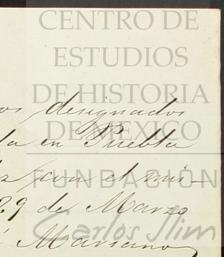 CENTRO DE
ESTUDIOS
DE HISTORIA
DE MEXICO
FUNDACIÓN
Carlos Slim
os designados
da en Puebla
con el mis-
29 de Marzo
Mariano